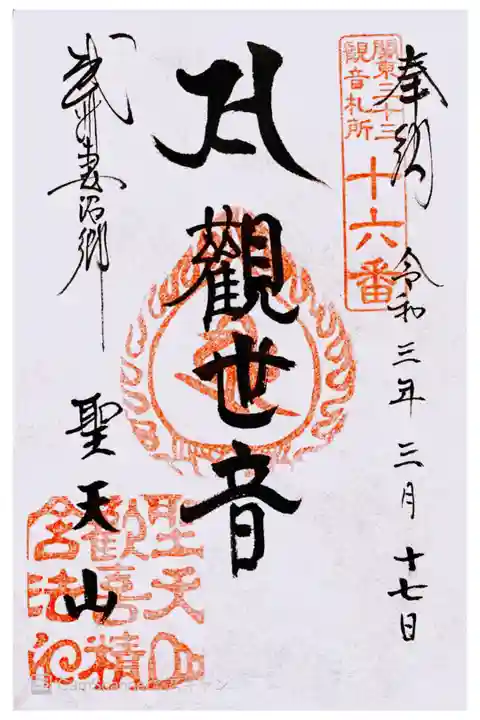 奉納
令和三年三月十七日
関東三十三
観音札所
十六番
観世音
武州妻沼郷
聖天山
聖天山
歓喜